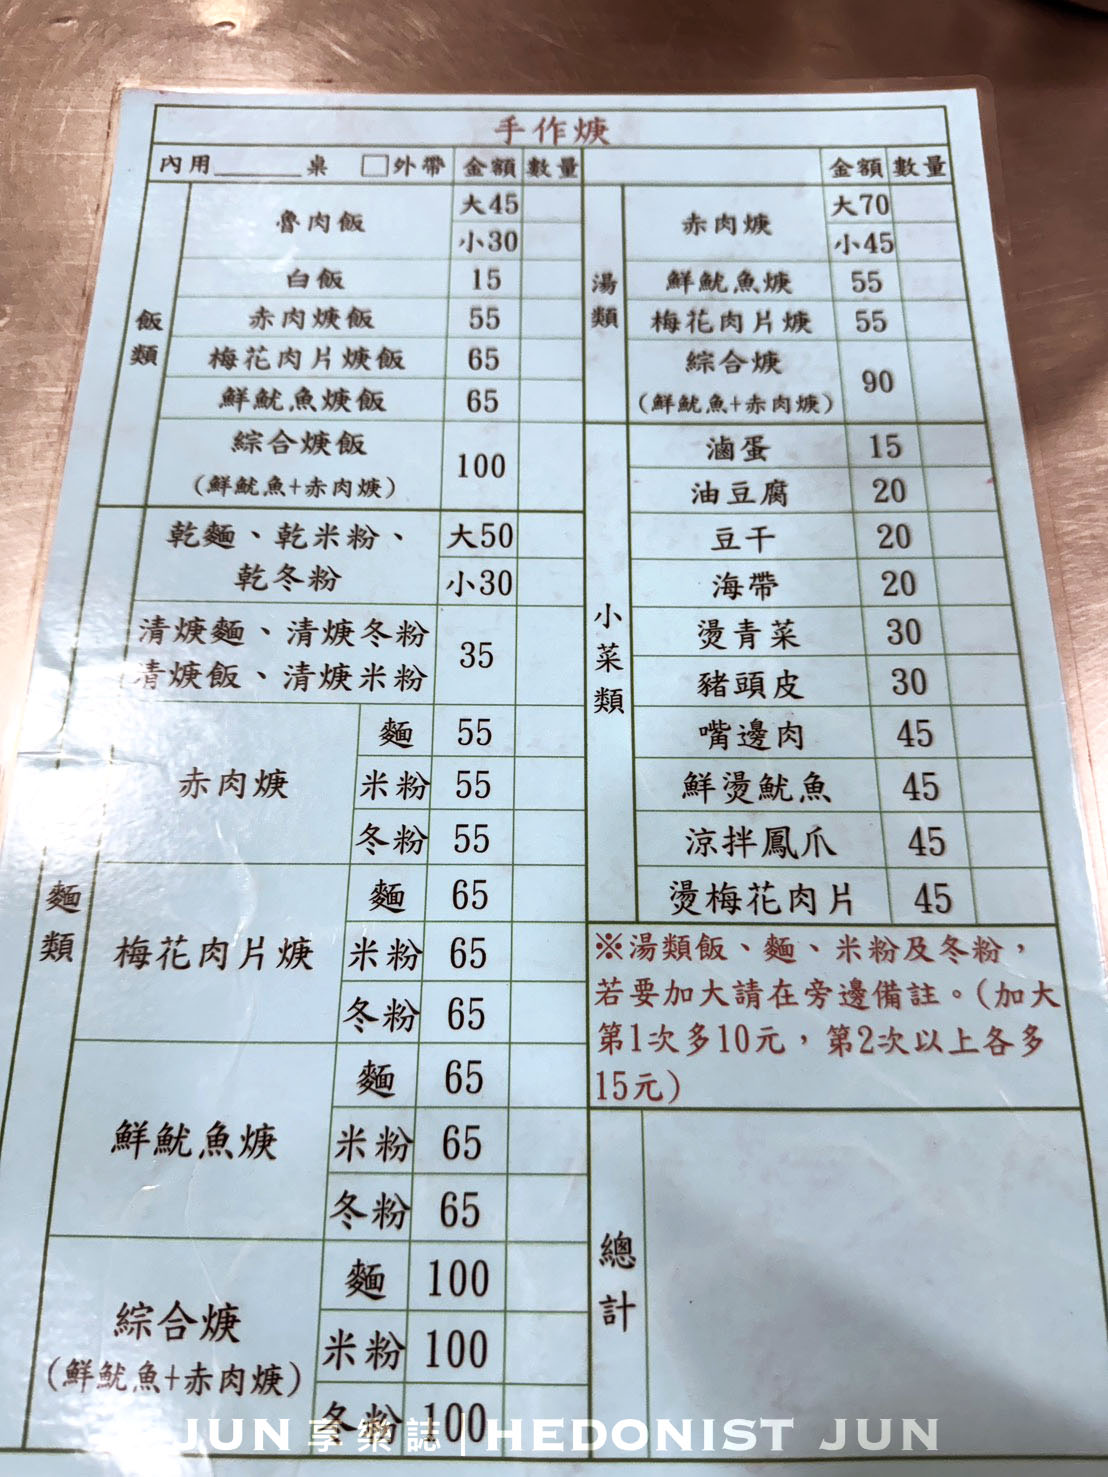 手作焿
內用 桌 □外帶 金額 數量
飯類
魯肉飯 大45
小30
白飯 15
赤肉焿飯 55
梅花肉片焿飯 65
鮮魷魚焿飯 65
綜合焿飯
(鮮魷魚+赤肉焿) 100
麵類
乾麵、乾米粉、
乾冬粉
大50
小30
清焿麵、清焿冬粉
清焿飯、清焿米粉
35
赤肉焿
麵 55
米粉 55
冬粉 55
梅花肉片焿
麵 65
米粉 65
冬粉 65
鮮魷魚焿
麵 65
米粉 65
冬粉 65
綜合焿
(鮮魷魚+赤肉焿)
麵 100
米粉 100
冬粉 100
金額 數量
湯類
赤肉焿 大70
小45
鮮魷魚焿 55
梅花肉片焿 55
綜合焿
(鮮魷魚+赤肉焿) 90
小菜類
滷蛋 15
油豆腐 20
豆干 20
海帶 20
燙青菜 30
豬頭皮 30
嘴邊肉 45
鮮燙魷魚 45
涼拌鳳爪 45
燙梅花肉片 45
※湯類飯、麵、米粉及冬粉，
若要加大請在旁邊備註。(加大
第1次多10元，第2次以上各多
15元)
總計
JUN 享樂誌 | HEDONIST JUN